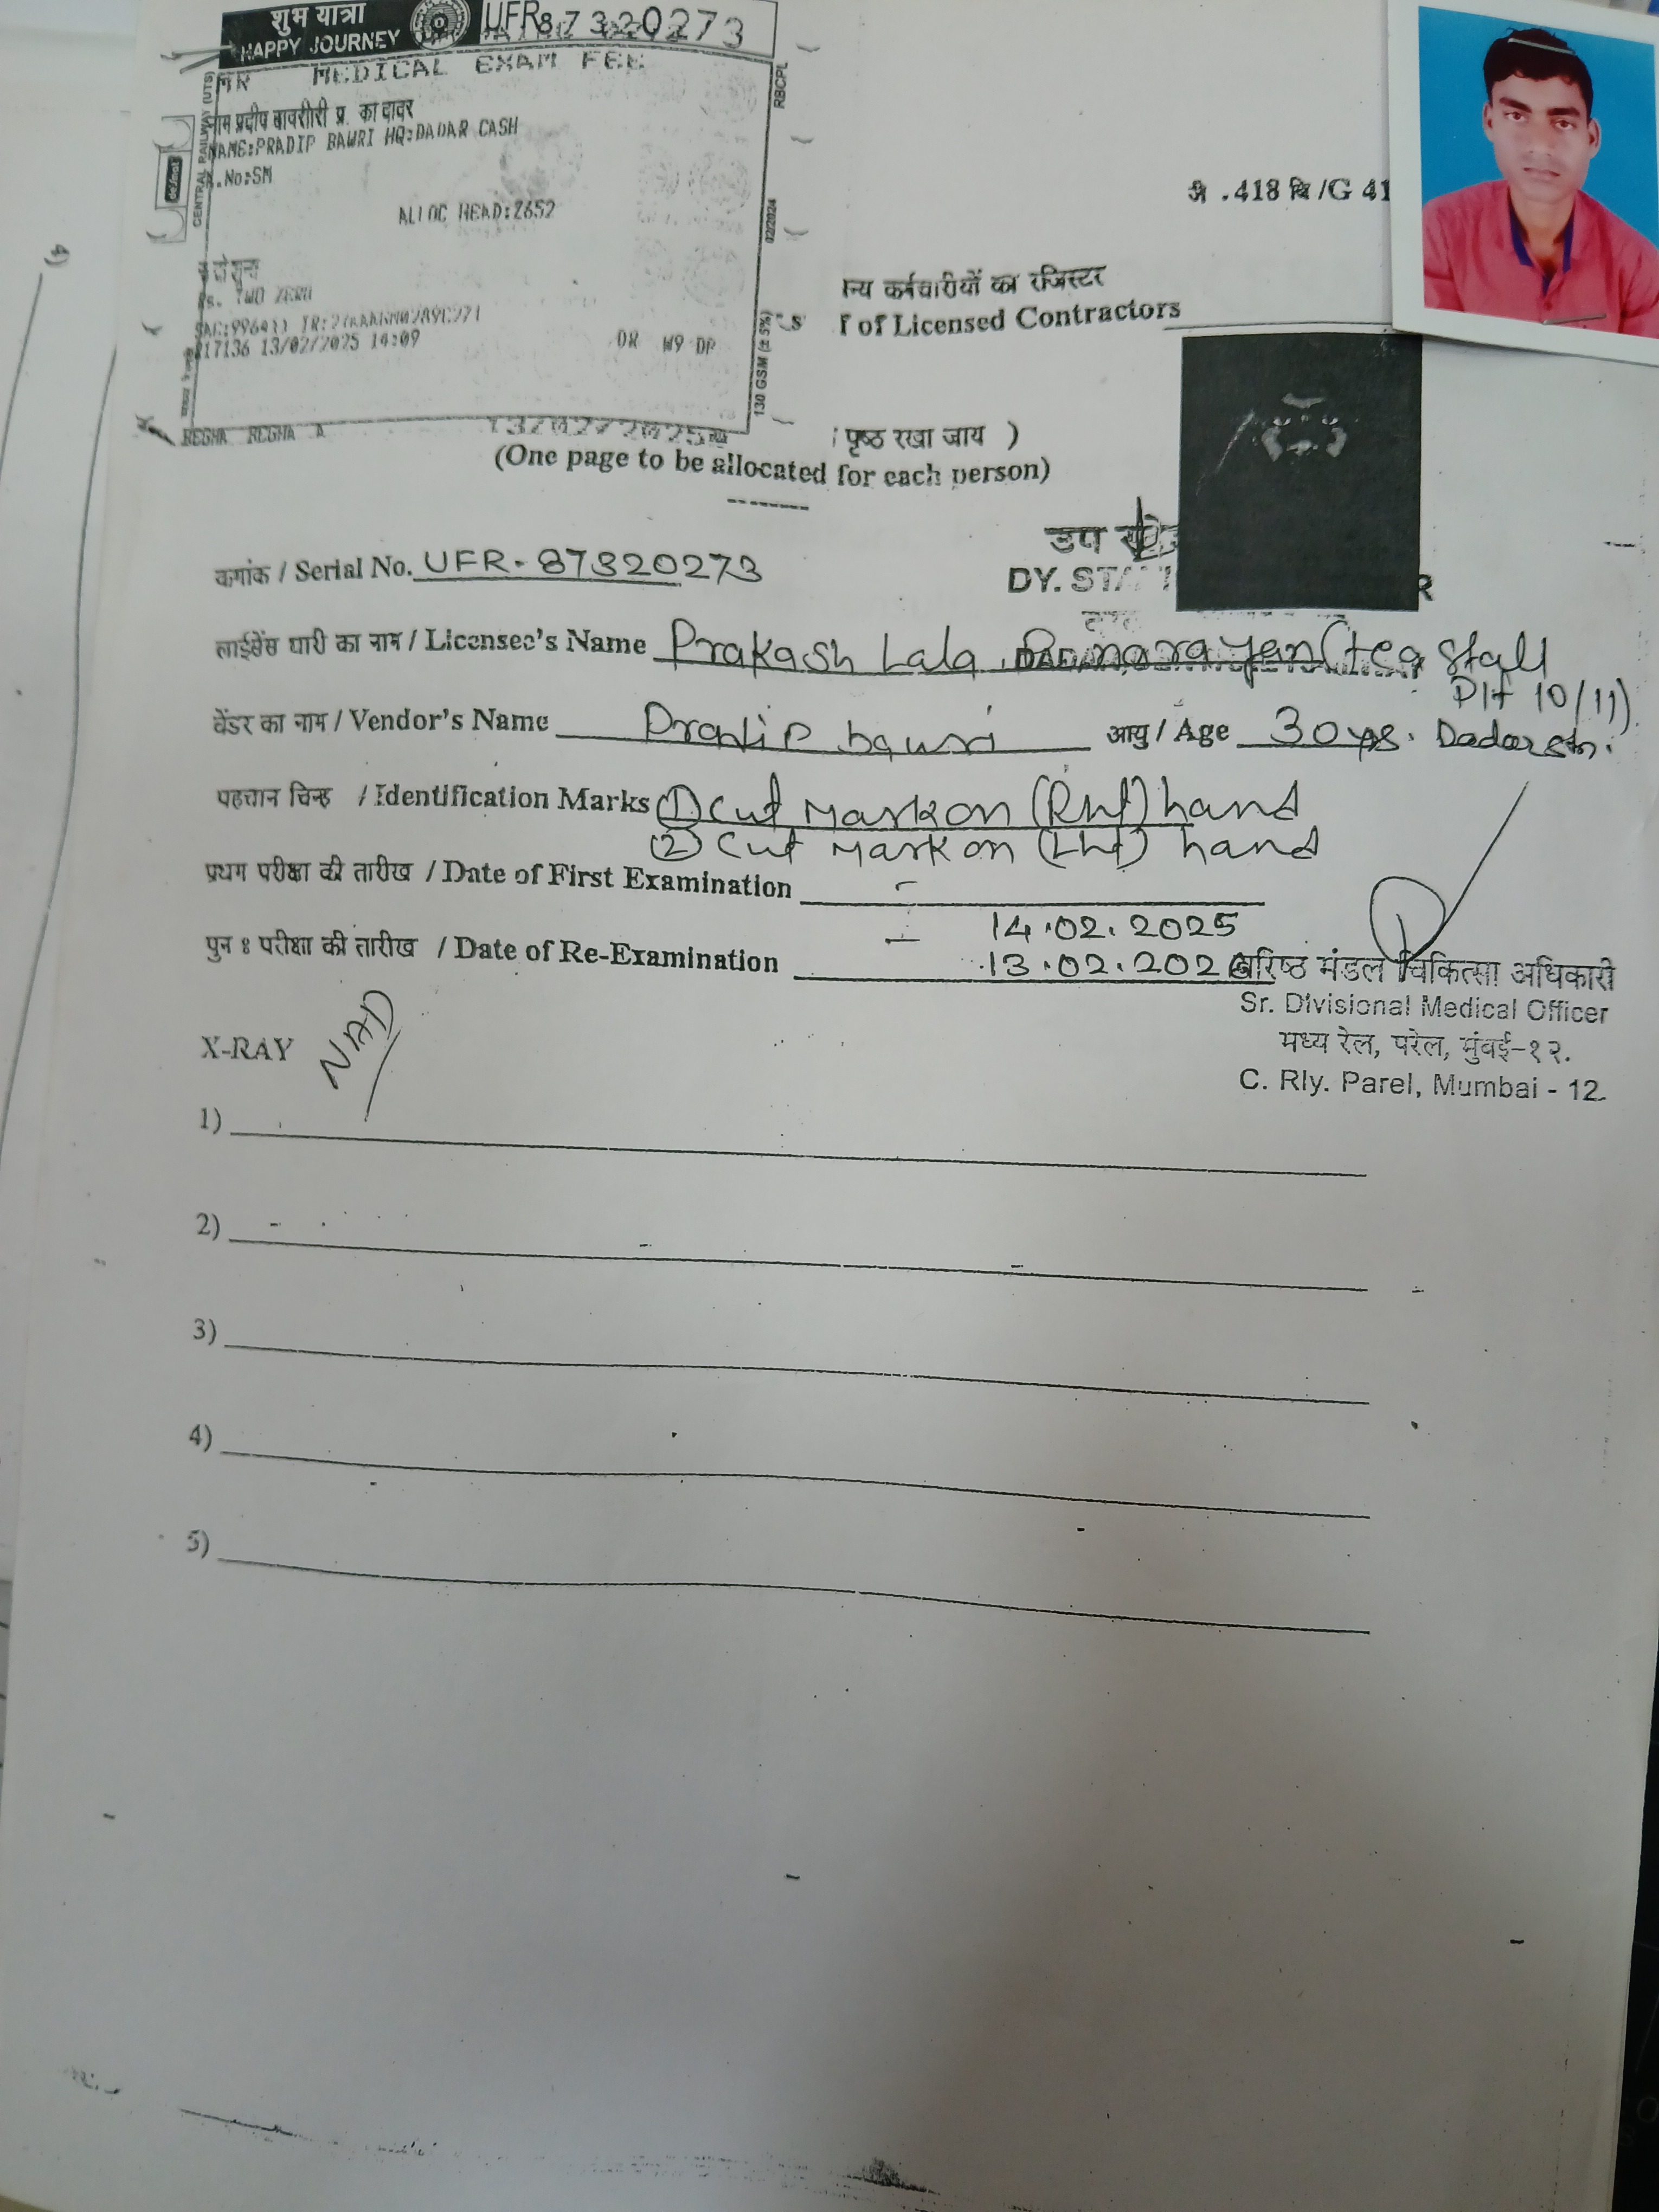 शुभ यात्रा
HAPPY JOURNEY
UFR87320273
MR MEDICAL EXAM FEE
नाम प्रदीप बावरीरी प्र. का दादर
NAME:PRADIP BAWRI HQ:DADAR CASH
.No:SM
ALLOC HEAD:2652
Rs. TWO ZERO
17136 13/02/2025 14:09
DR W9 DP
CENTRAL RAILWAY (UTS)
RBCPL
02/2024
130 GSM (± 5%)
REGHA REGHA A
.418 /G 41
न्य कर्मचारीयों का रजिस्टर
of Licensed Contractors
पृष्ठ रखा जाय )
(One page to be allocated for each person)
उप
DY. STA
R
क्रमांक / Serial No. UFR-87320273
लाईसेंस धारी का नाम / Licensee's Name Prakash Lala Ramnarayan (tea stall
Plt 10/11)
वेंडर का नाम / Vendor's Name Pradip bawri आयु / Age 30 yrs. Dadar stn.
पहचान चिन्ह / Identification Marks ① Cut Mark on (Rht) hand
② Cut Mark on (Lht) hand
प्रथम परीक्षा की तारीख / Date of First Examination -
14.02.2025
पुन ः परीक्षा की तारीख / Date of Re-Examination 13.02.2026
वरिष्ठ मंडल चिकित्सा अधिकारी
Sr. Divisional Medical Officer
मध्य रेल, परेल, मुंबई-१२.
C. Rly. Parel, Mumbai - 12.
X-RAY
1)
2)
3)
4)
5)
4)